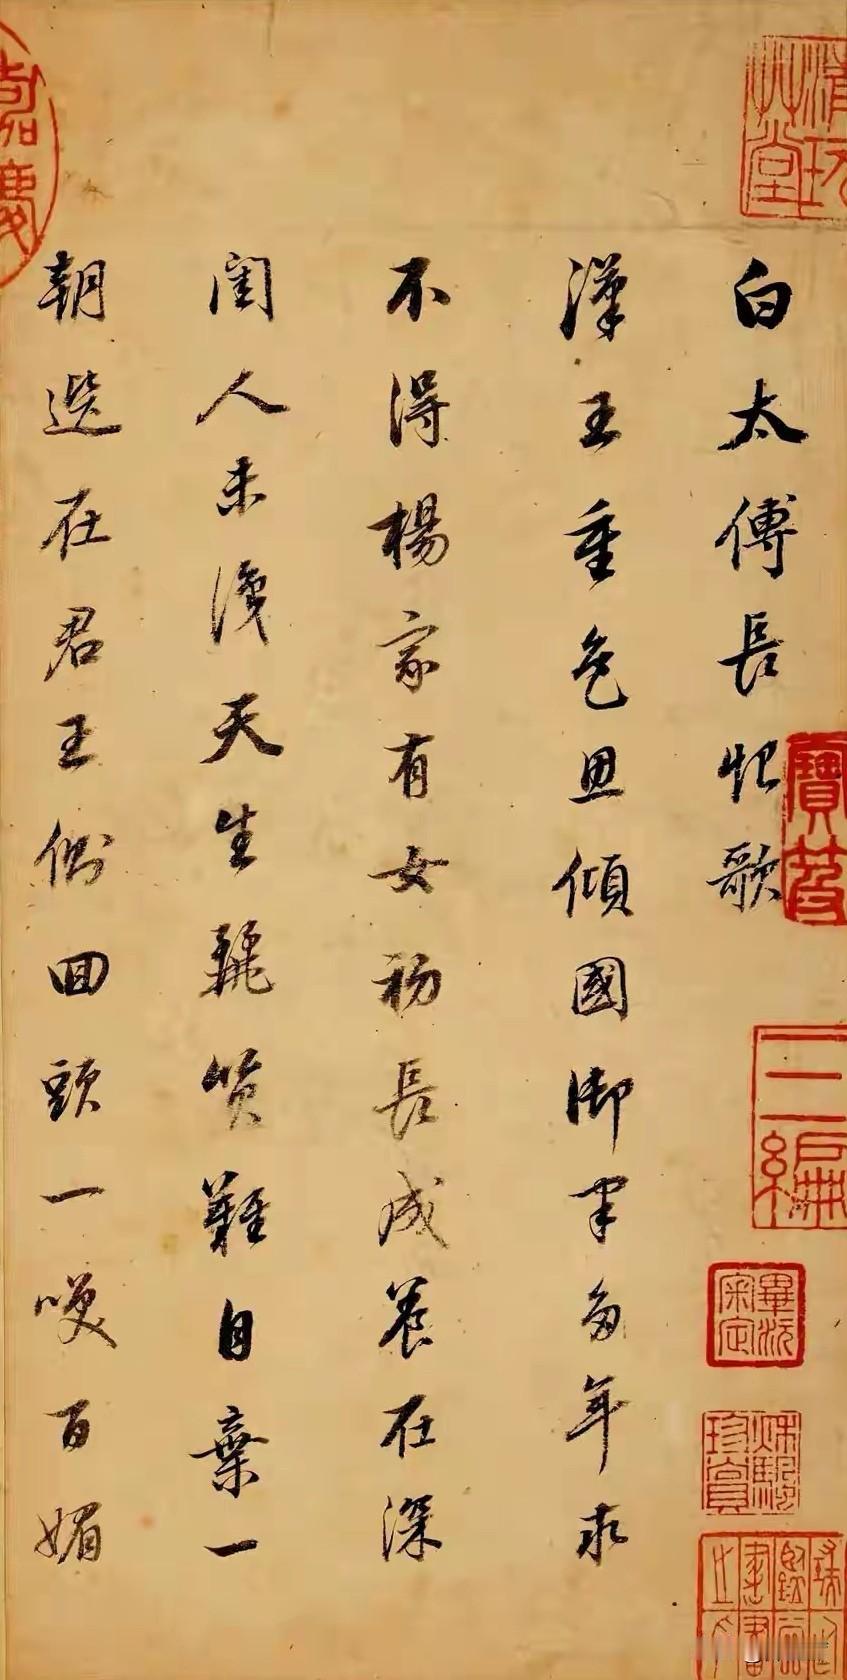 白太傅長恨歌
漢王重色思傾國御宇多年求
不得楊家有女初長成養在深
閨人未識天生麗質難自棄一
朝選在君王側回頭一咲百媚
寶笈
三編
畢沅審定
嘉慶